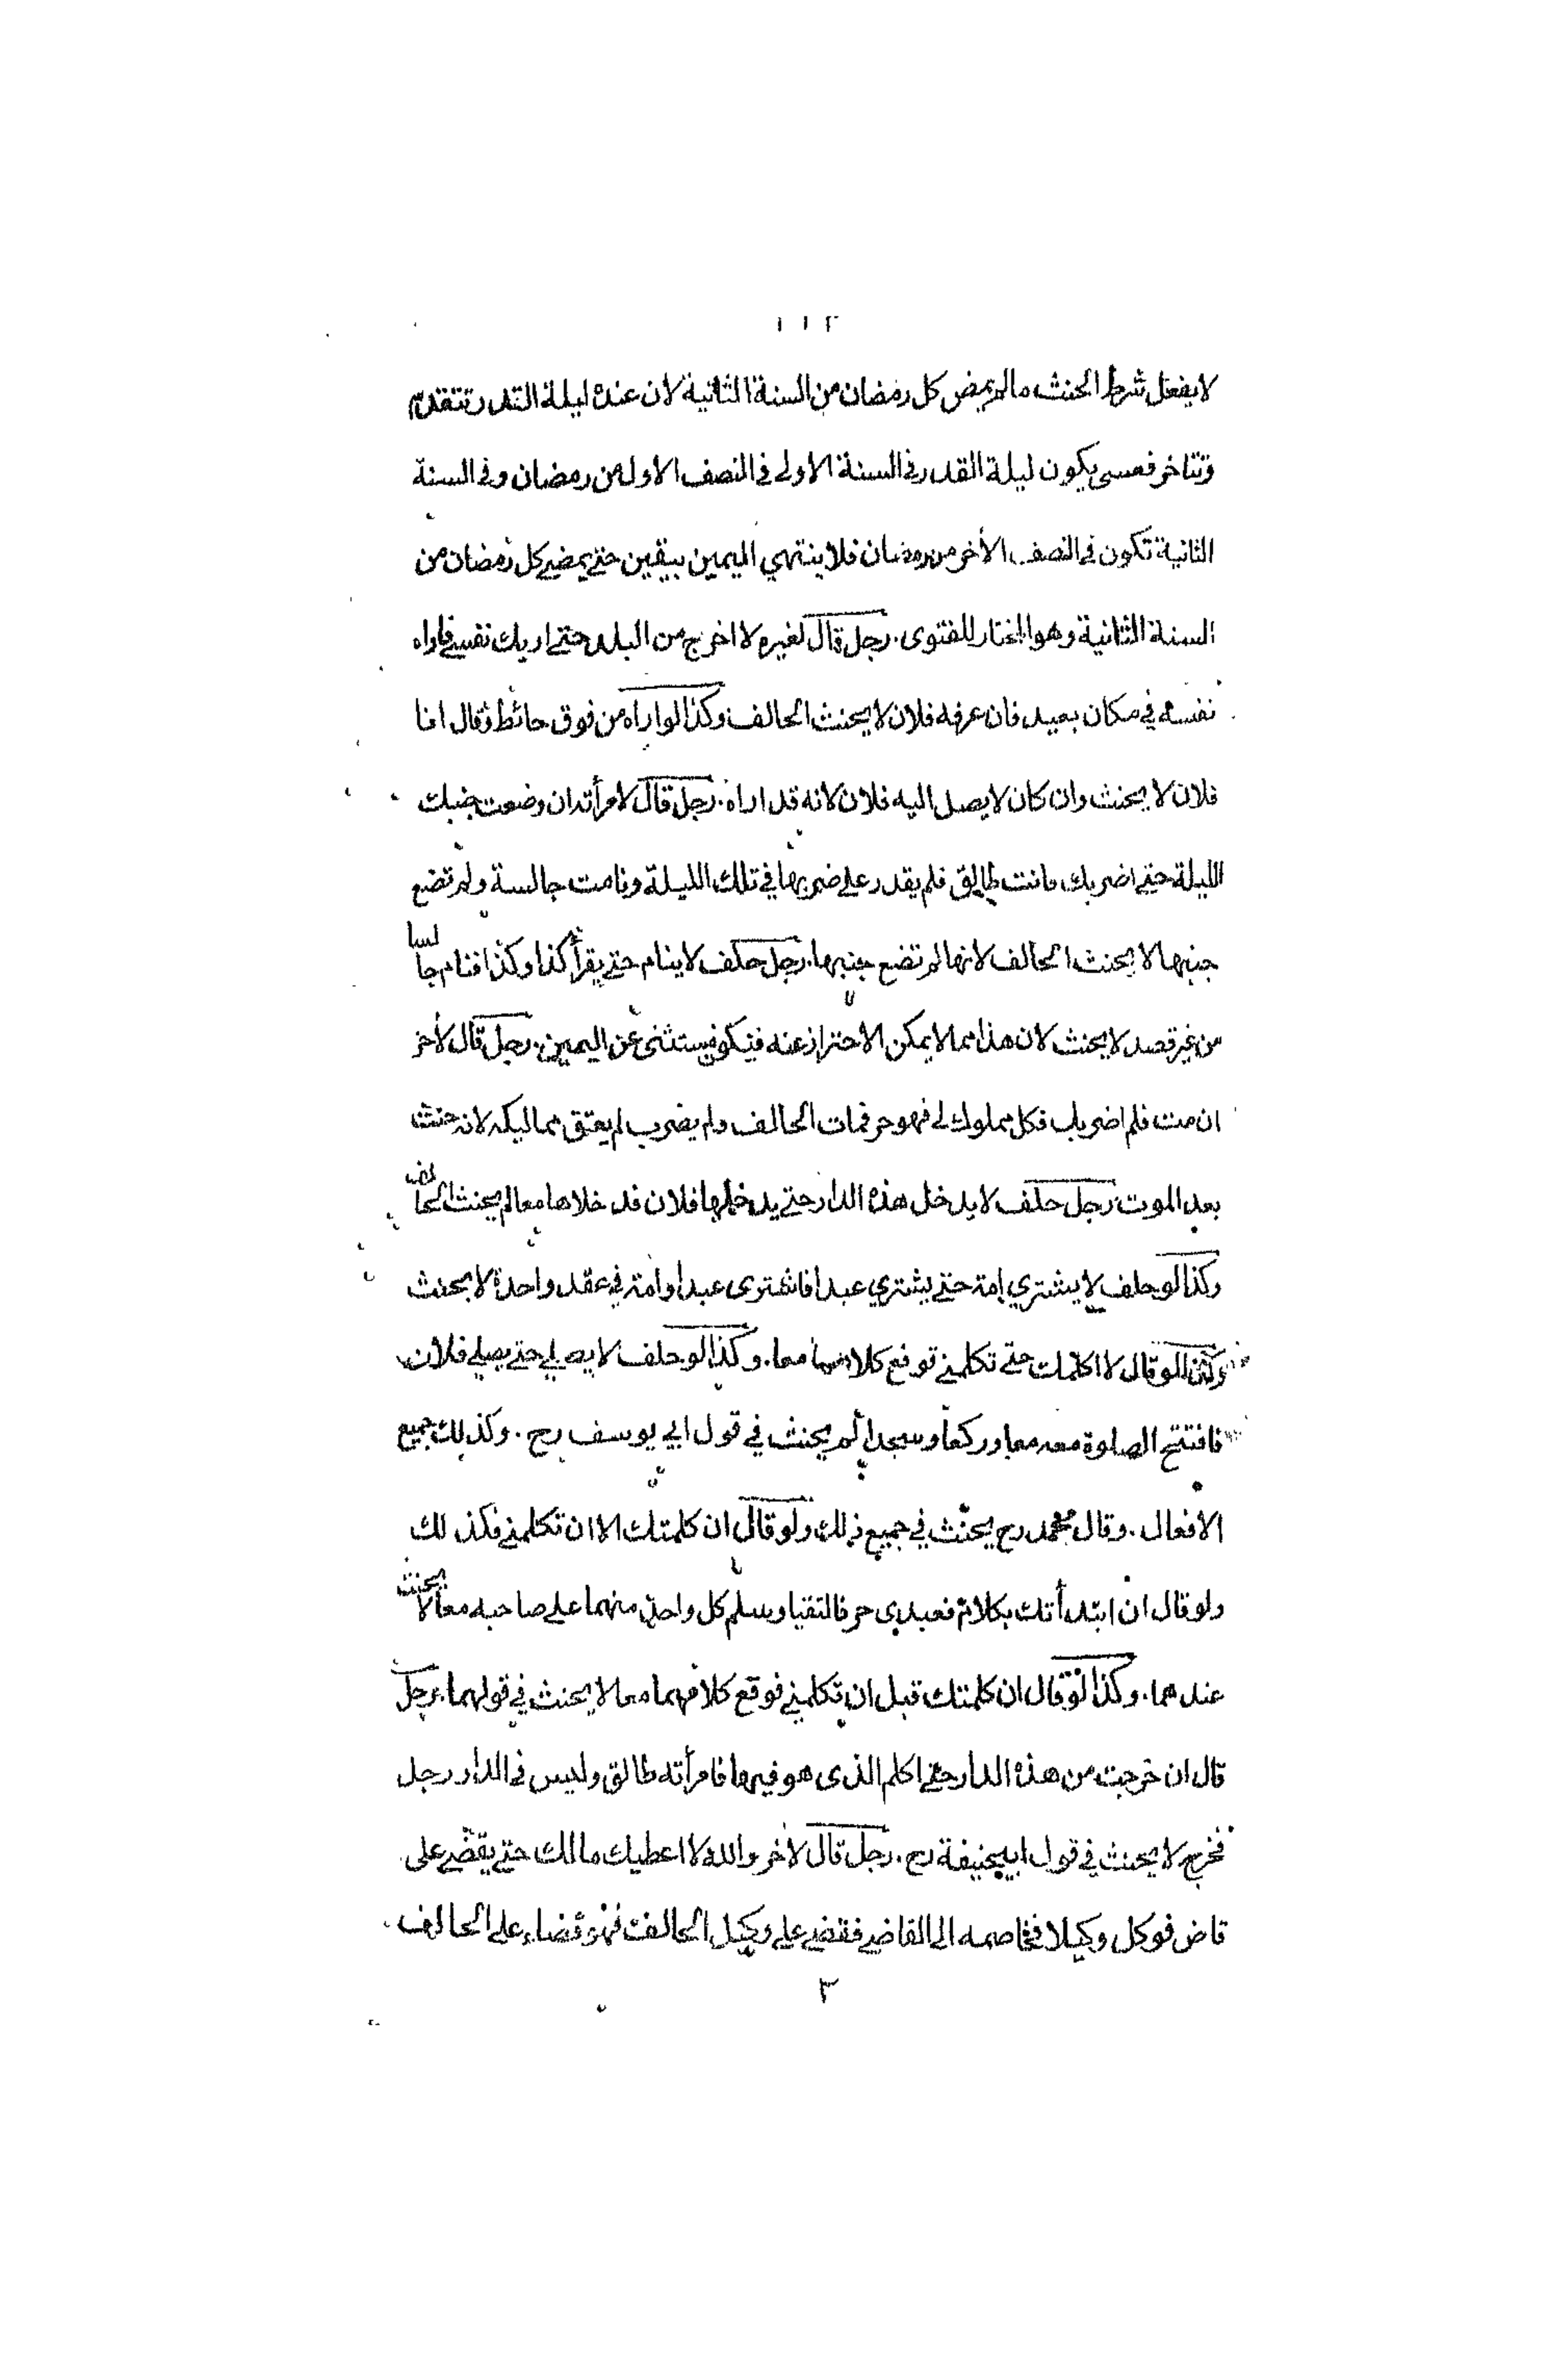 ١١٢
لا يفعل شرط الحنث ما لم يمض كل رمضان من السنة الثانية لان عنده ليلة القدر تتقدم
وتتاخر فعسى يكون ليلة القدر في السنة الاولى في النصف الاول من رمضان وفي السنة
الثانية تكون في النصف الأخر من رمضان فلا ينتهي اليمين بيقين حتى يمضي كل رمضان من
السنة الثانية وهو المختار للفتوى . رجل قال لغيره لا اخرج من البلد حتى اريك نفسي فاراه
نفسه في مكان بعيد فان عرفه فلان لا يحنث الحالف وكذا لو اراه من فوق حائط وقال انا
فلان لا يحنث وان كان لا يصل اليه فلان لانه قد اراه . رجل قال لامرأته ان وضعت جنبك
الليلة حتى اضربك فانت طالق فلم يقدر على ضربها في تلك الليلة ونامت جالسة ولم تضع
جنبها لا يحنث الحالف لانها لم تضع جنبها . رجل حلف لا ينام حتى يقرأ كذا وكذا فنام جالسا
من غير قصد لا يحنث لان هذا مما لا يمكن الاحتراز عنه فيكون مستثنى عن اليمين . رجل قال لأخر
ان مت فلم اضربك فكل مملوك لي فهو حر فمات الحالف ولم يضرب لم يعتق مماليكه لانه حنث
بعد الموت رجل حلف لا يدخل هذه الدار حتى يدخلها فلان فدخلاها معا لم يحنث الحالف
وكذا لو حلف لا يشتري امة حتى يشتري عبدا فاشترى عبدا وامة في عقد واحدة لا يحنث
وكذا لو قال لا اكلمك حتى تكلمني فوقع كلامهما معا . وكذا لو حلف لا يصلي حتى يصلي فلان
فافتتح الصلوة معه معا وركعا وسجدا لم يحنث في قول ابي يوسف رح . وكذلك جميع
الافعال . وقال محمد رح يحنث في جميع ذلك ولو قال ان كلمتك الا ان تكلمني فكذلك
ولو قال ان ابتدأتك بكلام فعبدي حر فالتقيا وسلم كل واحد منهما على صاحبه معا لا يحنث
عندهما . وكذا لو قال ان كلمتك قبل ان تكلمني فوقع كلامهما معا لا يحنث في قولهما . رجل
قال ان خرجت من هذه الدار حتى اكلم الذى هو فيها فامرأته طالق وليس في الدار رجل
فخرج لا يحنث في قول ابيحنيفة رح . رجل قال لأخر والله لا اعطيك مالك حتى يقضي على
قاض فوكل وكيلا فخاصمه الى القاضي فقضى على وكيل الحالف فهو قضاء على الحالف
٣